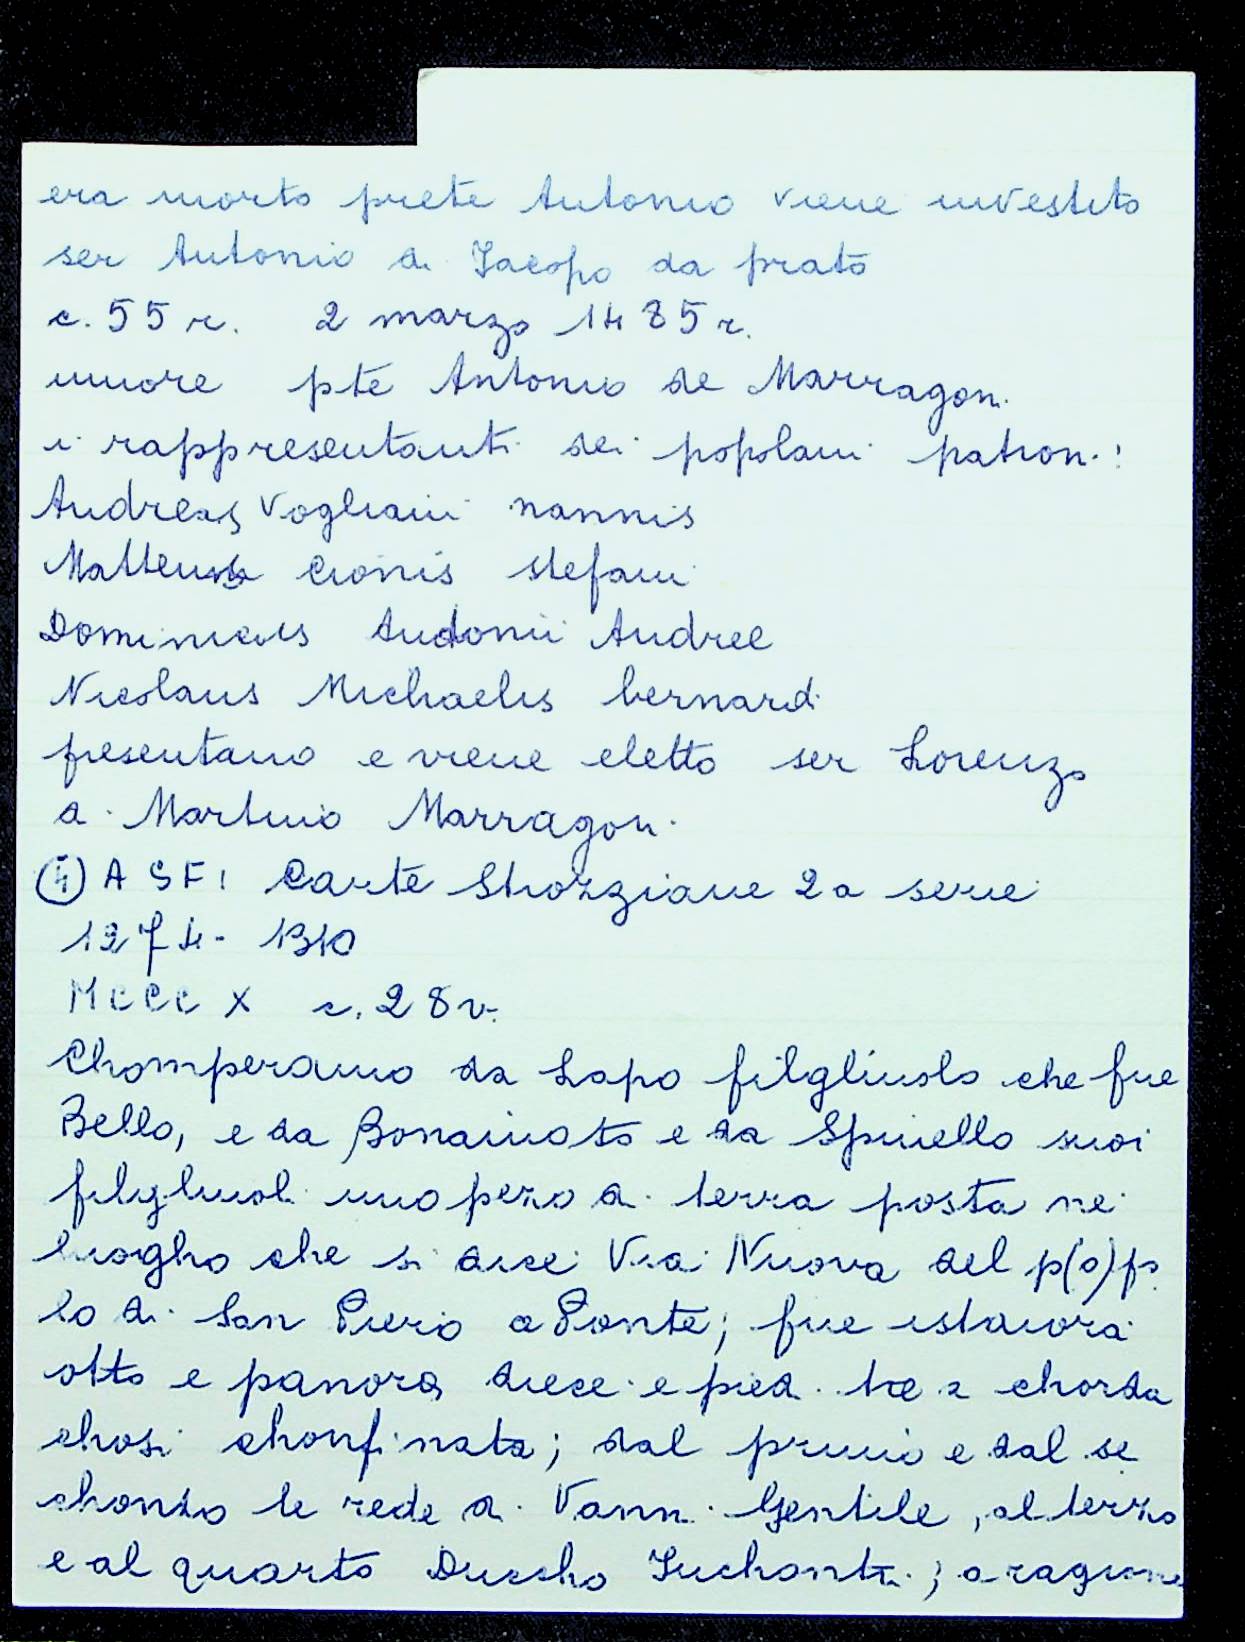 era morto prete Antonio viene investito
ser Antonio di Jacopo da prato
c. 55 r. 2 marzo 1485 r.
muore pte Antonio de Marragon.
i rappresentanti dei popolani patroni:
Andreas Vogliani nannis
Matteus Cionis stefani
Dominicus Andonii Andree
Nicolaus Michaelis bernardi
presentano e viene eletto ser Lorenzo
di Martino Marragon.
④ ASFI Carte Strozziane 2a serie
1274 - 1310
MCCCX c. 28v.
Chomperamo da Lapo filgliuolo che fue
Bello, e da Bonaiuto e da Spinello suoi
filgluoli uno pezo di terra posta nei
luogho che si dice Via Nuova del p(o)po
lo di San Piero a Ponte; fue istaiora
otto e panora diece e piedi tre a chorda
chosi chonfinata; dal primo e dal se
chondo le rede di Vanni Gentile, al terzo
e al quarto Duccho ; a ragione